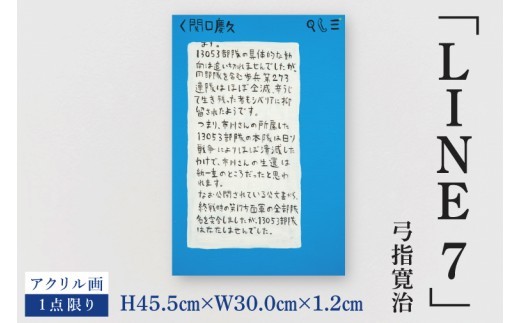 く関口慶久
ます。
13053部隊の具体的な動
向は追い切れませんでしたが、
同部隊を含む歩兵第273
連隊はほぼ全滅、辛うじ
て生き残った者もシベリアに抑
留されたようです。
つまり、市川さんの所属した
13053部隊の本隊は日ソ
戦争によりほぼ潰滅した
わけで、市川さんの生還は
紙一重のところだったと思わ
れます。
なお公開されている公文書から、
終戦時の第17方面軍の全部隊
名を突合しましたが、13053部隊
は存在しませんでした。
「LINE 7」
弓指寛治
アクリル画
1点限り
H45.5cm×W30.0cm×1.2cm